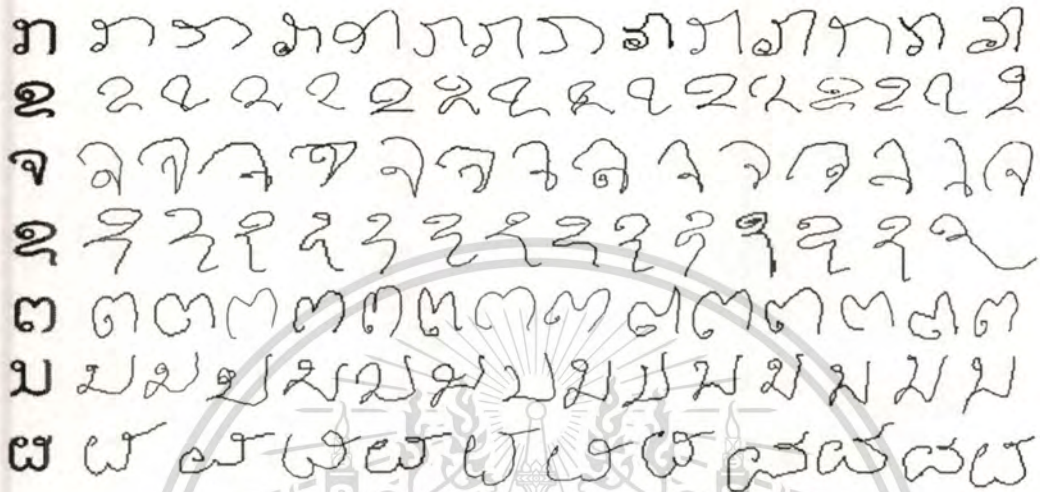 ກ ກ ກ ກ ກ ກ ກ ກ ກ ກ ກ ກ ກ ກ
ຂ ຂ ຂ ຂ ຂ ຂ ຂ ຂ ຂ ຂ ຂ ຂ ຂ ຂ ຂ ຂ
ຈ ຈ ຈ ຈ ຈ ຈ ຈ ຈ ຈ ຈ ຈ ຈ ຈ ຈ ຈ
ຊ ຊ ຊ ຊ ຊ ຊ ຊ ຊ ຊ ຊ ຊ ຊ ຊ ຊ ຊ
ຕ ຕ ຕ ຕ ຕ ຕ ຕ ຕ ຕ ຕ ຕ ຕ ຕ ຕ ຕ
ນ ນ ນ ນ ນ ນ ນ ນ ນ ນ ນ ນ ນ ນ ນ
ຜ ຜ ຜ ຜ ຜ ຜ ຜ ຜ ຜ ຜ ຜ ຜ